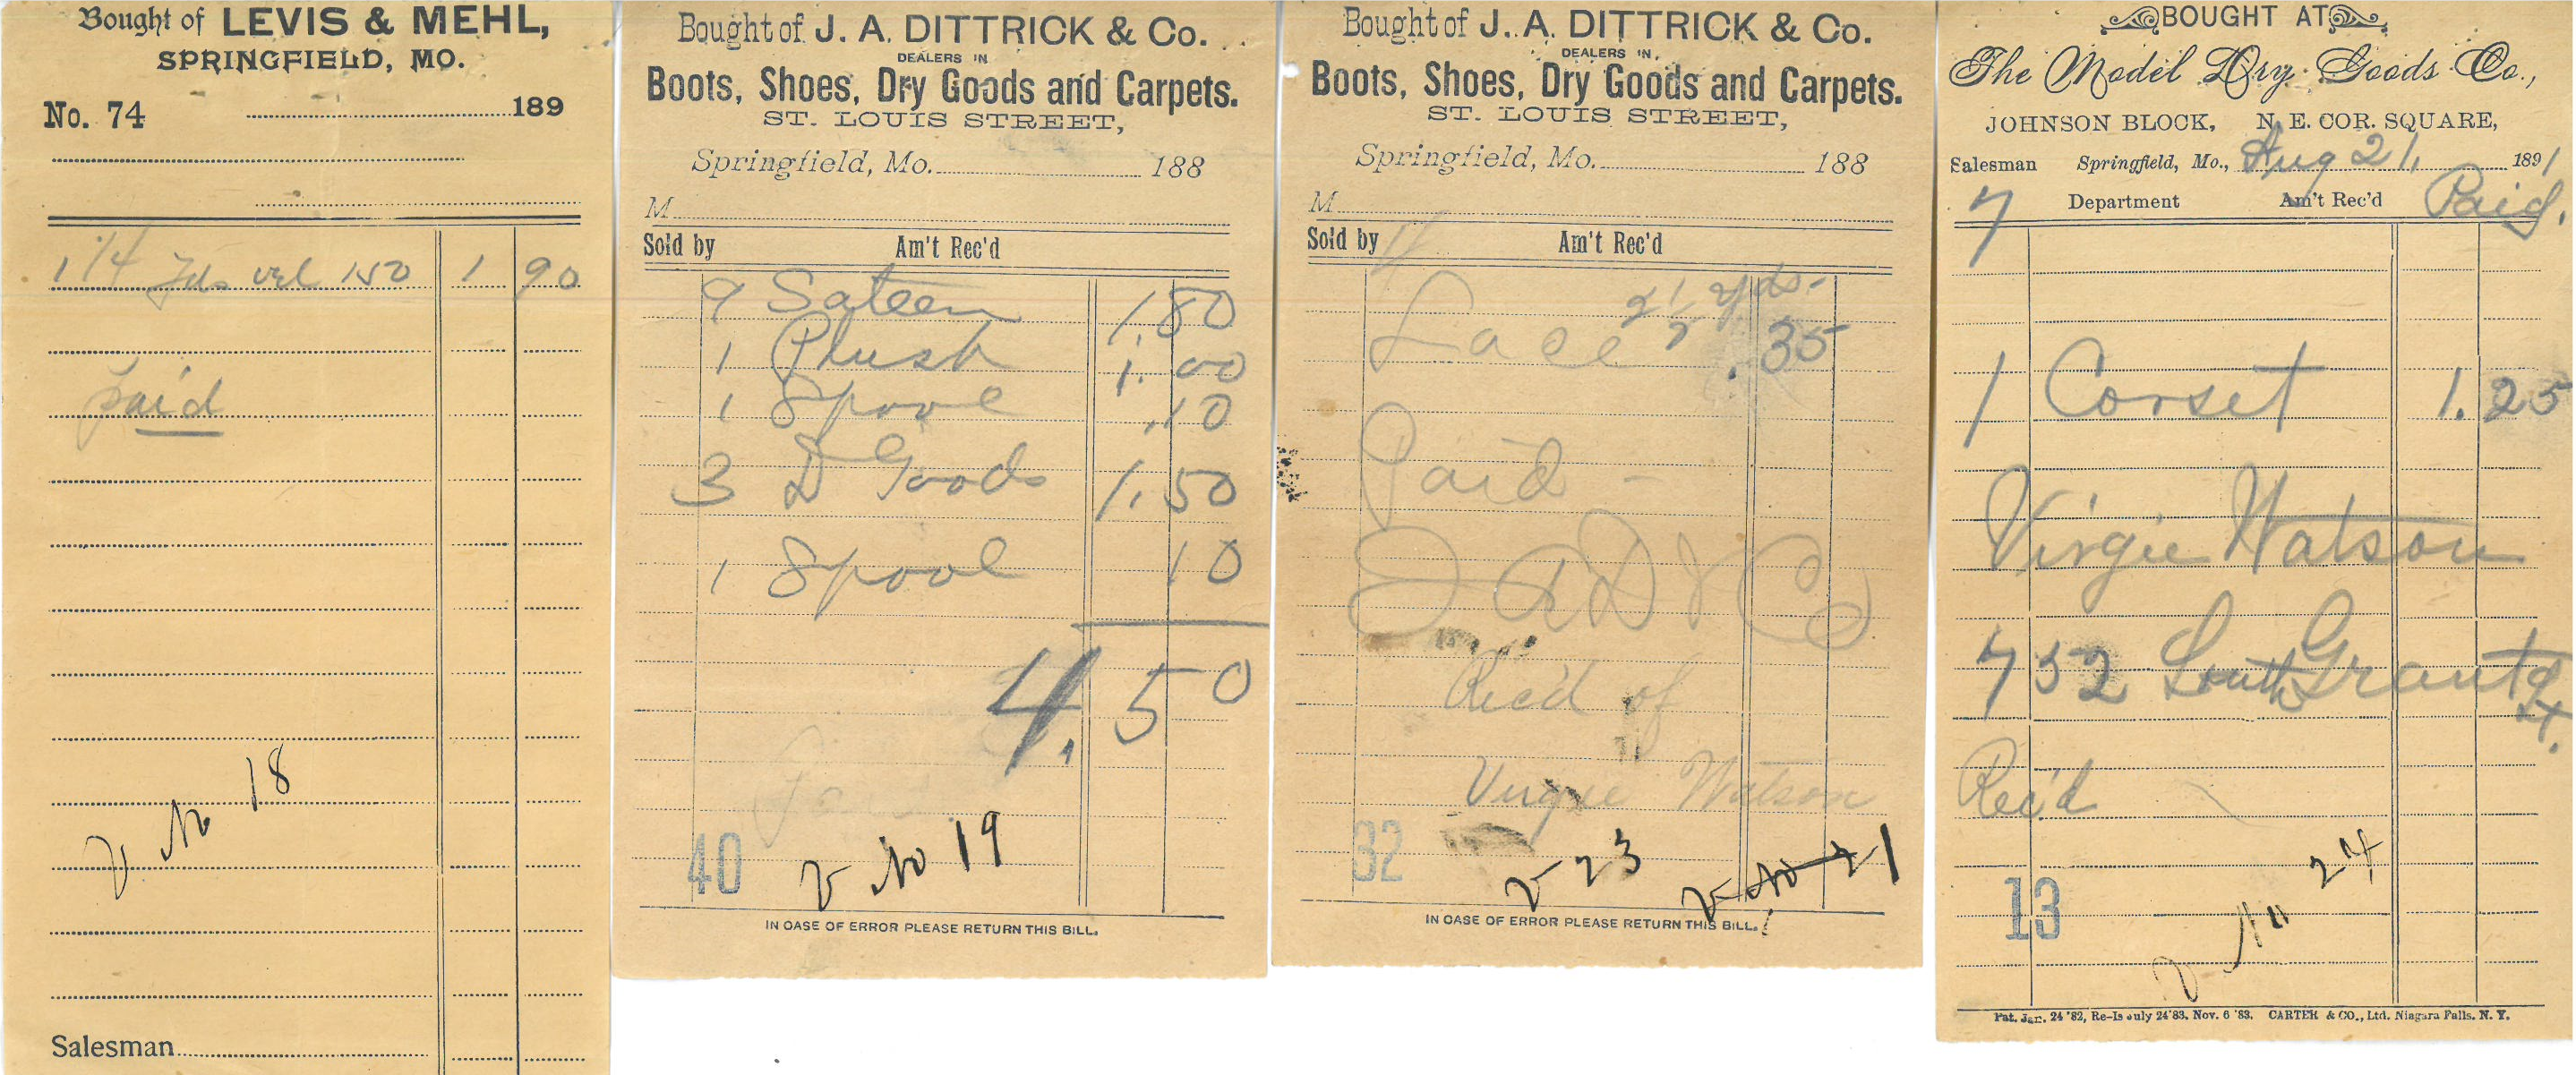 Bought of LEVIS & MEHL,
SPRINGFIELD, MO.
No. 74 189
1 1/4 Yds vel 150 1 90
paid
V No 18
Salesman
Bought of J. A. DITTRICK & Co.
DEALERS IN
Boots, Shoes, Dry Goods and Carpets.
ST. LOUIS STREET,
Springfield, Mo. 188
M
Sold by Am't Rec'd
9 Sateen 1.80
1 Plush 1.00
1 Spool .10
3 D Goods 1.50
1 Spool 10
4.50
Paid
40
V No 19
IN CASE OF ERROR PLEASE RETURN THIS BILL.
Bought of J. A. DITTRICK & Co.
DEALERS IN
Boots, Shoes, Dry Goods and Carpets.
ST. LOUIS STREET,
Springfield, Mo. 188
M
Sold by Am't Rec'd
2 1/2 yds.
Lace .35
Paid -
J A D & Co
Rec'd of
Virgie Watson
32
V 23 V No 21
IN CASE OF ERROR PLEASE RETURN THIS BILL.
BOUGHT AT
The Model Dry Goods Co.,
JOHNSON BLOCK, N. E. COR. SQUARE,
Salesman Springfield, Mo., Aug 21, 1891
7 Department Am't Rec'd Paid.
1 Corset 1.25
Virgie Watson
732 South Grant St.
Rec'd
13
V No 24
Pat. Jan. 24 '82, Re-Is July 24 '83, Nov. 6 '83. CARTER & CO., Ltd. Niagara Falls. N. Y.